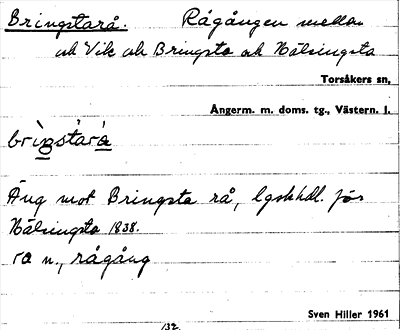 Bringstarå. Rågången mellan
och Vik och Bringsta och Hälsingsta
Torsåkers sn,
Ångerm. m. doms. tg., Västern. l.
brìŋstàrα
Äng mot Bringsta rå, lgskhdl. för
Hälsingsta 1838.
rå n., rågång
Sven Hiller 1961
132.